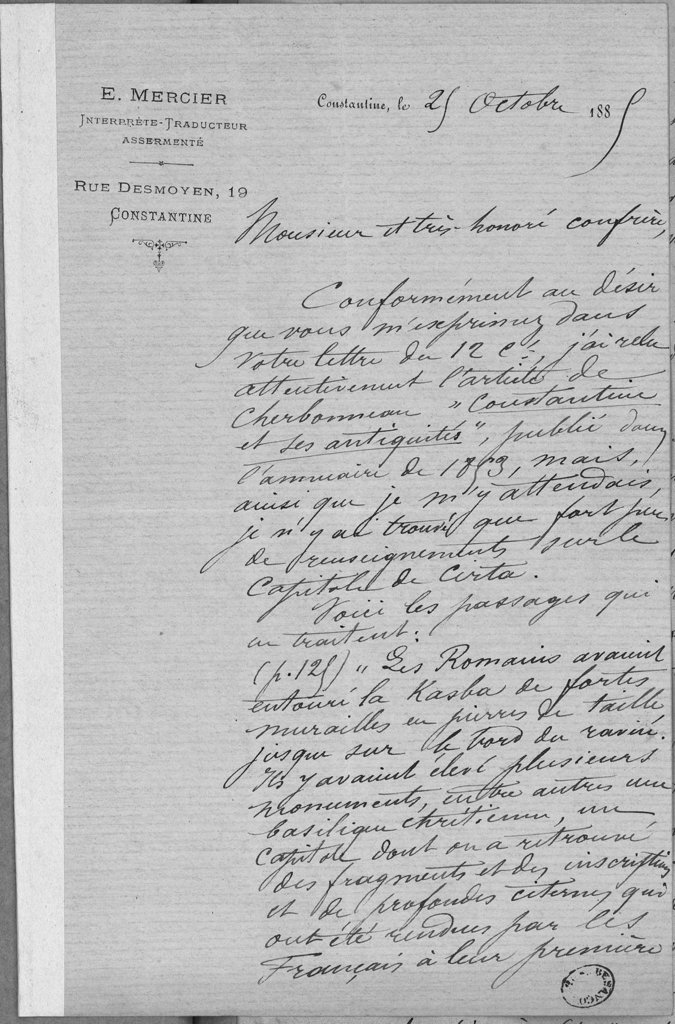 E. MERCIER
INTERPRÈTE-TRADUCTEUR
ASSERMENTÉ
RUE DESMOYEN, 19
CONSTANTINE
Constantine, le 25 Octobre 1885
Monsieur et très-honoré confrère,
Conformément au désir
que vous m'exprimez dans
votre lettre du 12 ct, j'ai relu
attentivement l'article de
Cherbonneau "Constantine
et ses antiquités", publié dans
l'annuaire de 1853, mais,
ainsi que je m'y attendais,
je n'y ai trouvé que fort peu
de renseignements sur le
Capitole de Cirta.
Voici les passages qui
en traitent:
(p.125) "Les Romains avaient
entouré la Kasba de fortes
murailles en pierres de taille
jusque sur le bord du ravin.
Ils y avaient élevé plusieurs
monuments, entre autres une
basilique chrétienne, un
capitole dont on a retrouvé
des fragments et des inscriptions
et de profondes citernes qui
ont été rendues par les
Français à leur première
BESANÇON